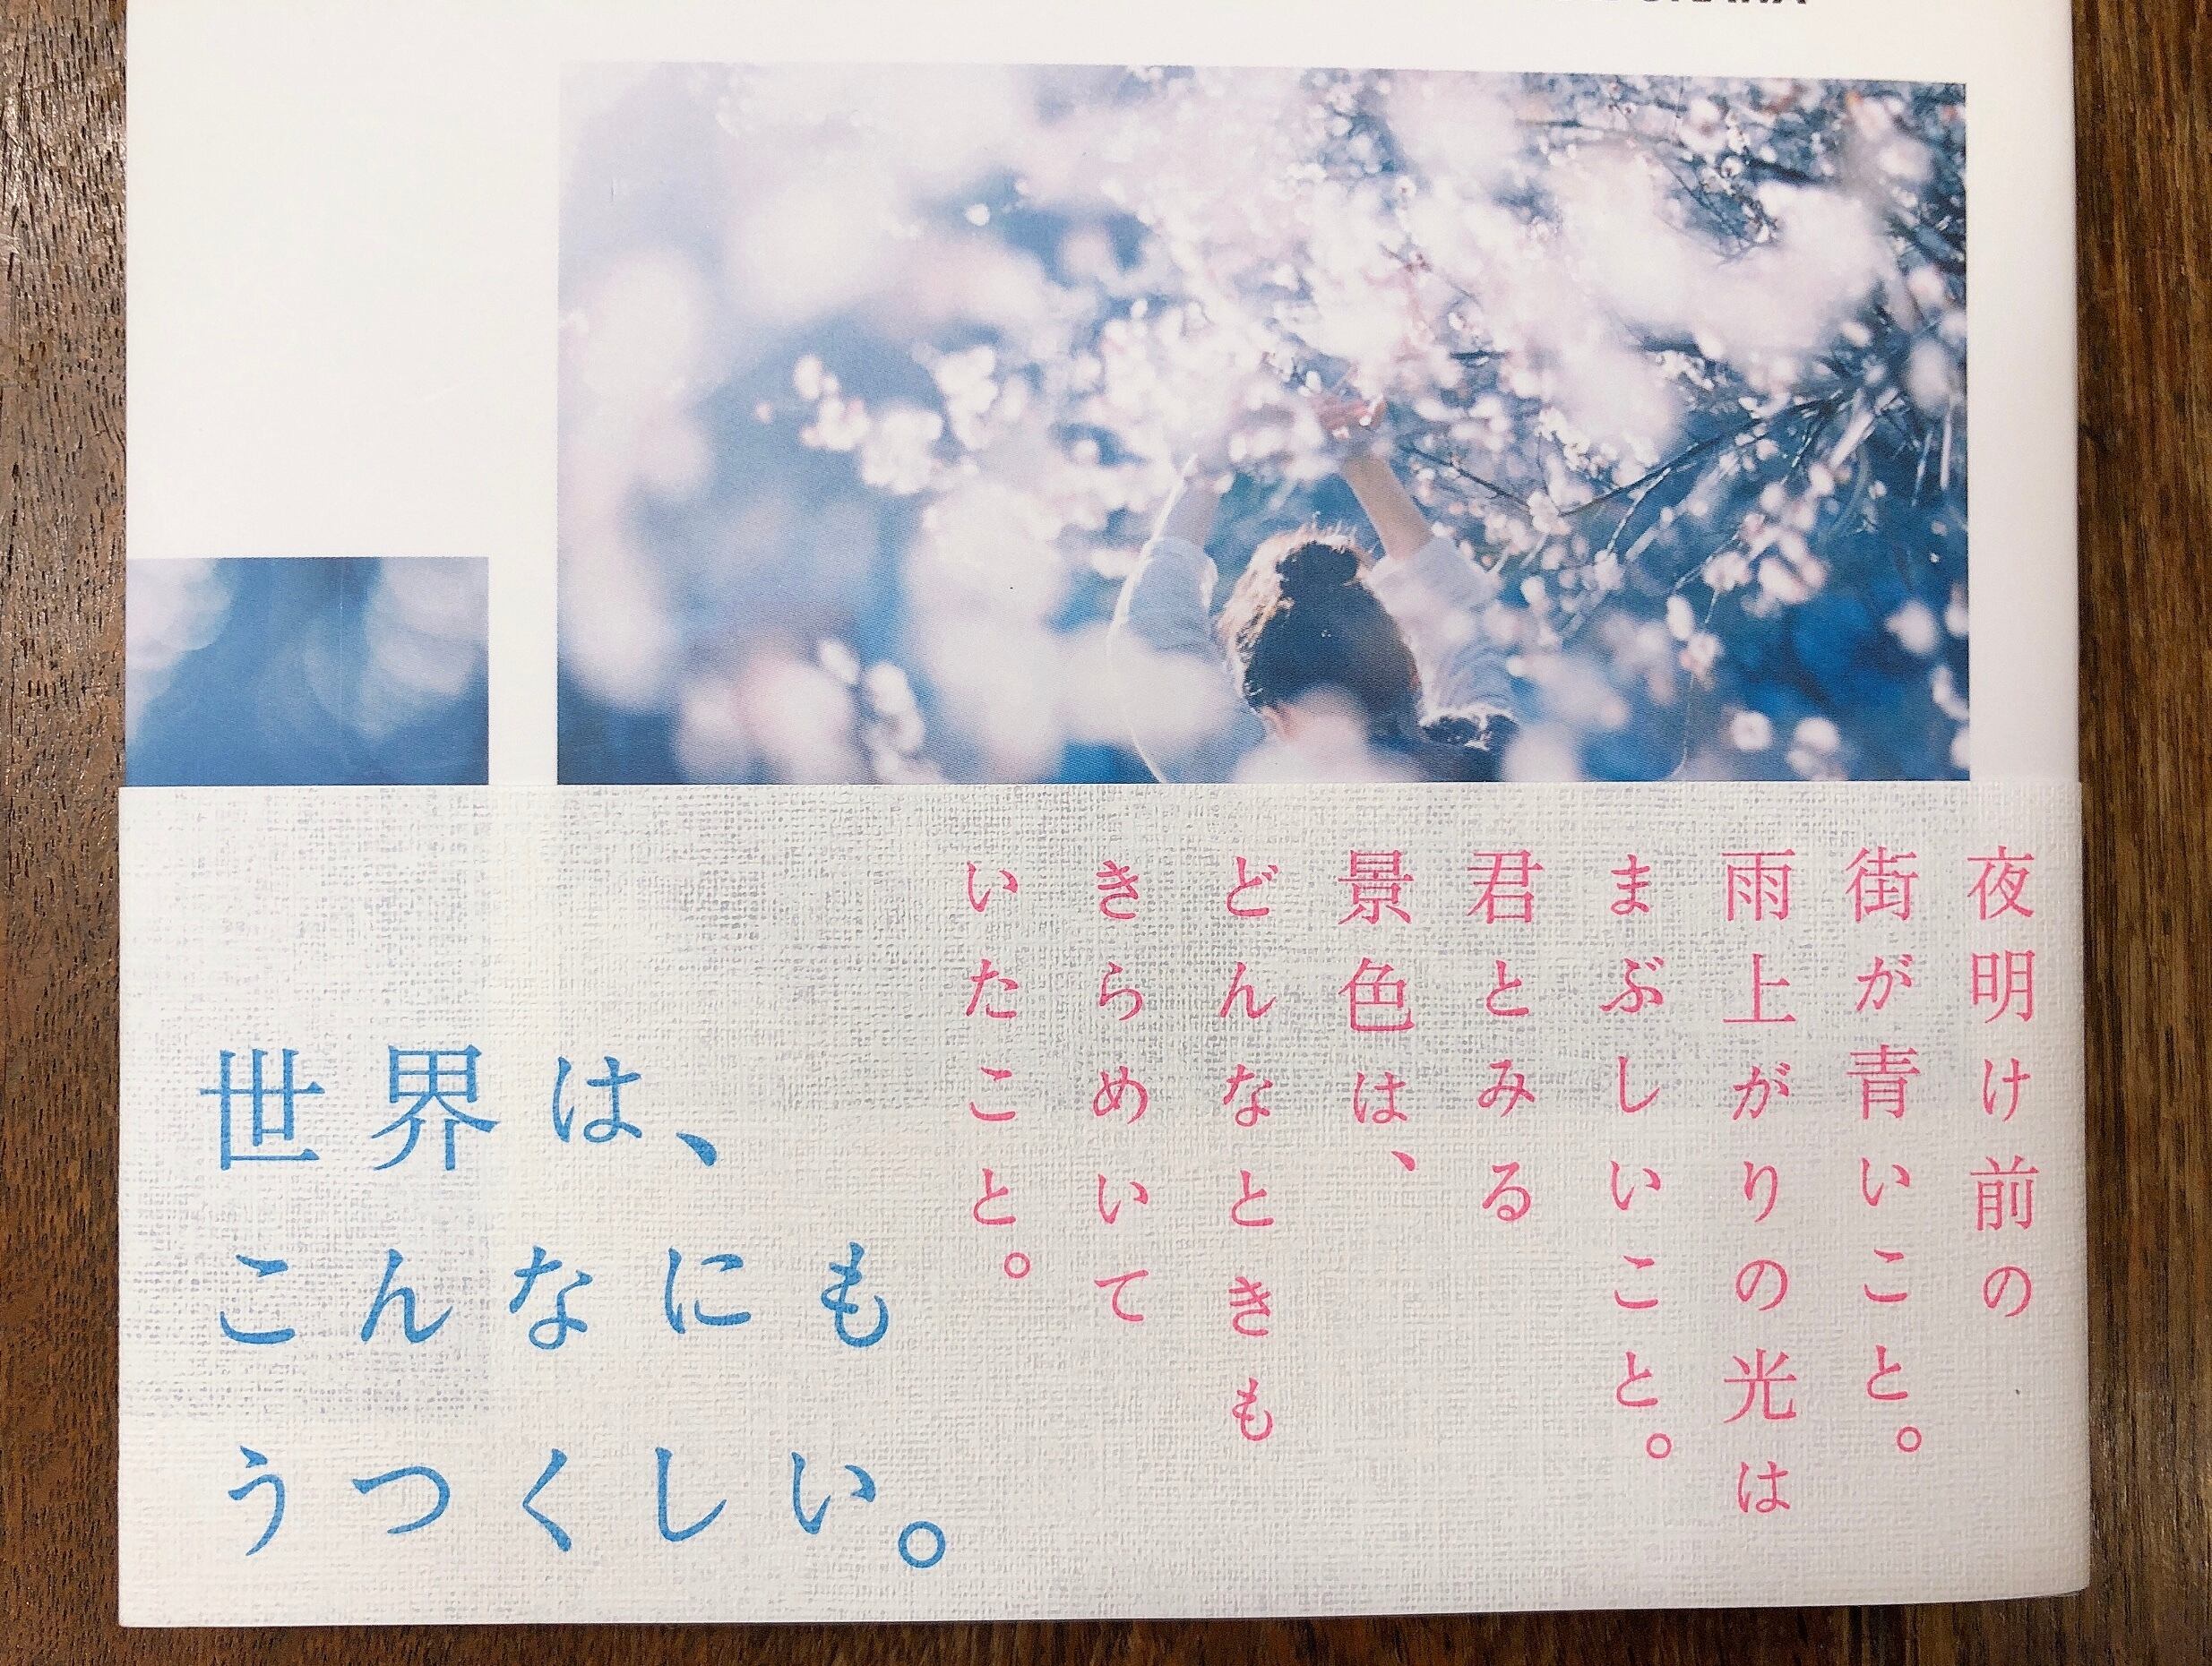 夜明け前の
街が青いこと。
雨上がりの光は
まぶしいこと。
君とみる
景色は、
どんなときも
きらめいて
いたこと。
世界は、
こんなにも
うつくしい。